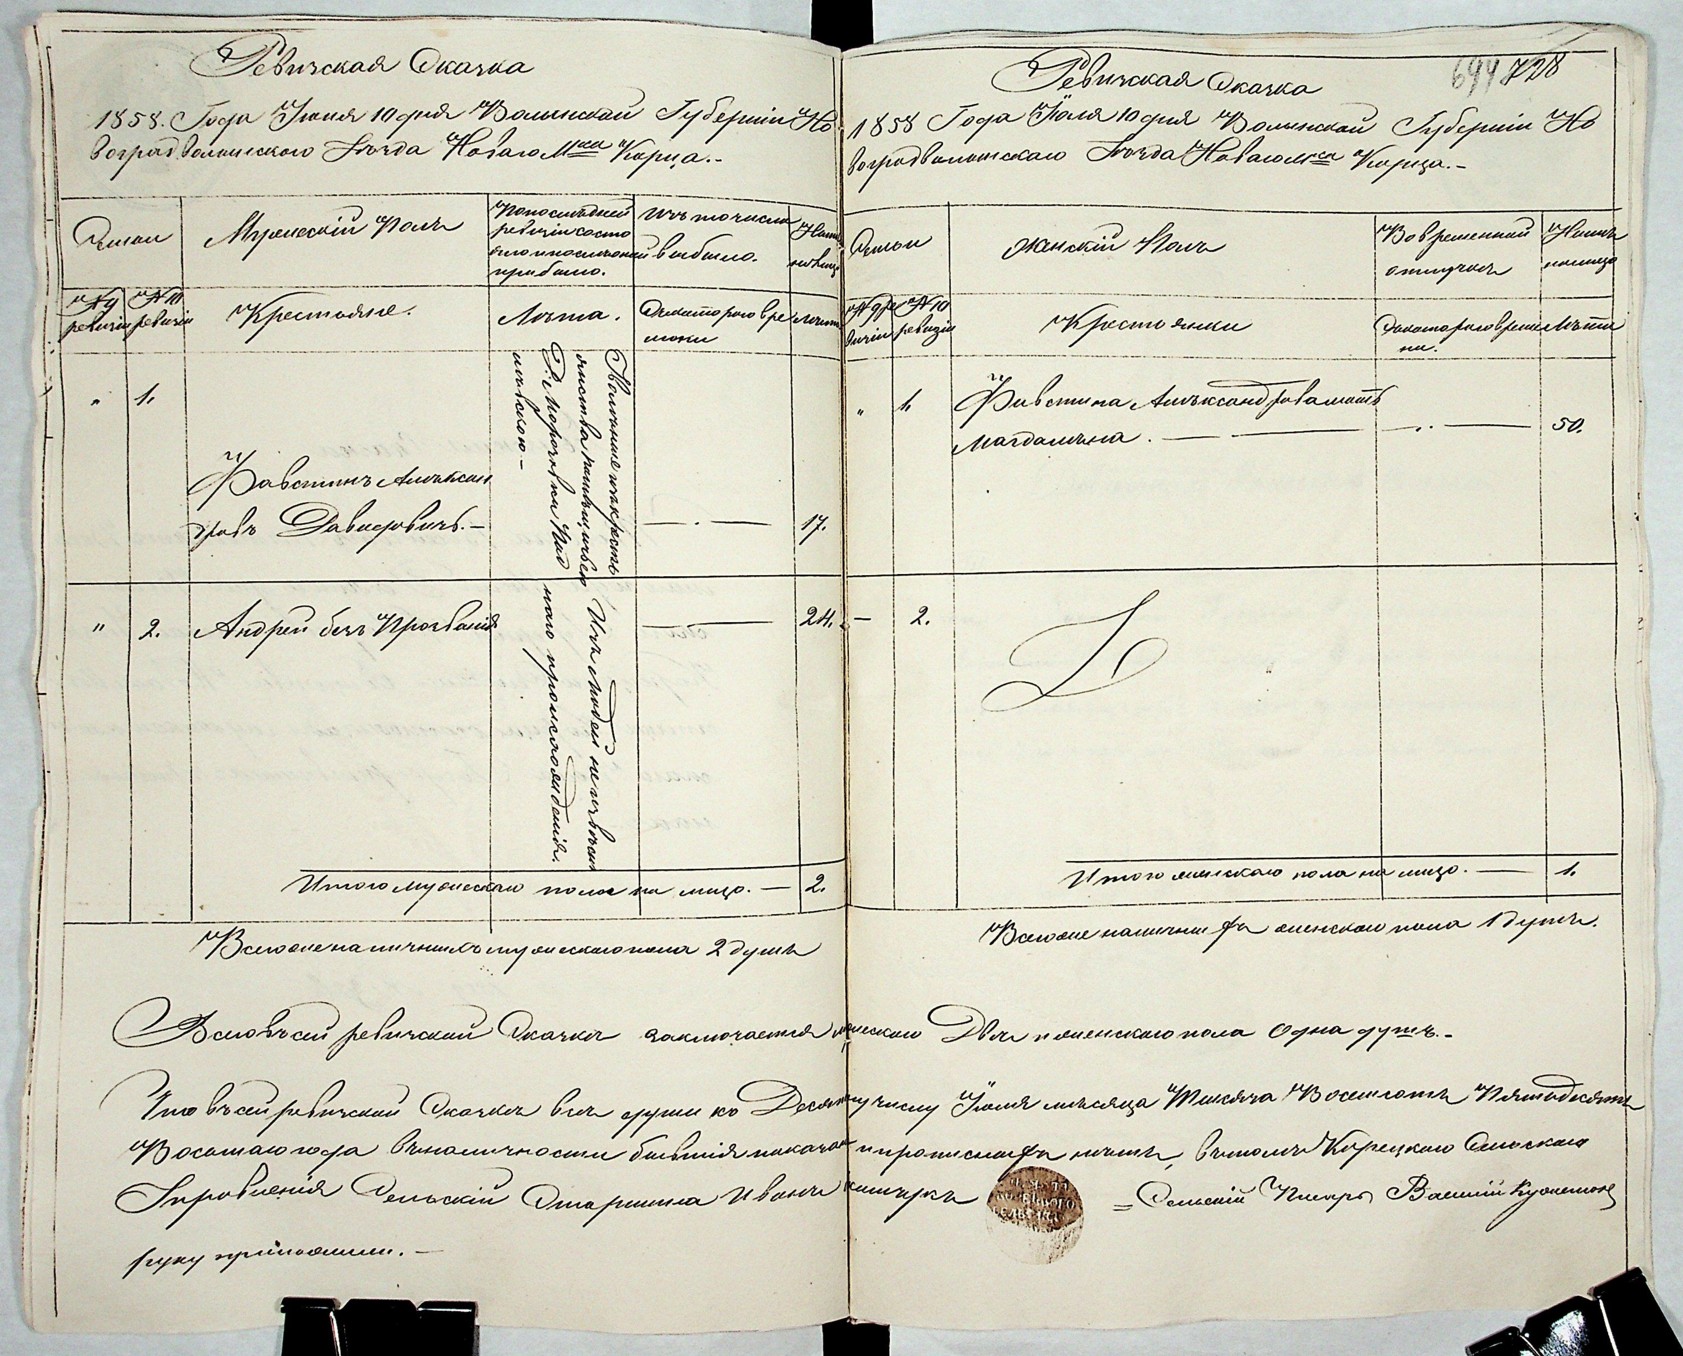 Ревизская Сказка
1858. Года Іюля 10 дня Волынской Губерніи Но
воградволынскаго Уѣзда Новаго Мѣста Корца.-
Семьи
Мужескій Полъ
По последней
ревизіи состо
яло и после оной
прибыло.
Изъ того числа
выбыло.
Ныне
на лицо
№ 9 ревизіи
№ 10 ревизіи
Крестьяне.
Лѣта.
Съ котораго вре
мени
Лѣта
„ 1.
Фавстинъ Алексан
дровъ Давидовичъ.-
17.
„ 2. Андрей безъ Прозванія
24.
Изъ людей неизвѣст
наго происхожденія.
Итого мужескаго пола на лицо. — 2.
Всего же наличныхъ мужескаго пола 2 души
694 728
Ревизская Сказка
1858 Года Іюля 10 дня Волынской Губерніи Но
воградволынскаго Уѣзда Новаго Мѣста Корца.-
Семьи
Женскій Полъ
Во временной
отлучкѣ
Ныне
на лицо
№ 9 ре
визіи
№ 10
ревизіи
Крестьянки
Съ котораго време
ни.
Лѣта
„ 1. Фавстина Александрова мать
Магдалена. — — 50.
— 2.
Итого женскаго пола на лицо. — 1.
Всего же наличныхъ женскаго пола 1 душа.
Всего въ сей ревизской Сказке заключается мужескаго Две и женскаго пола Одна душъ.-
Что въ сей ревизской Сказке все души ко Десятому числу Іюля мѣсяца Тысяча Восемсотъ Пятьдесятъ
Восьмаго года въ наличности бывшія показаны и прописныхъ нетъ, въ томъ Корецкаго Сельскаго
Управленія Сельскій Старшина Иванъ = Сельскій Писарь Василій
руку приложили.-